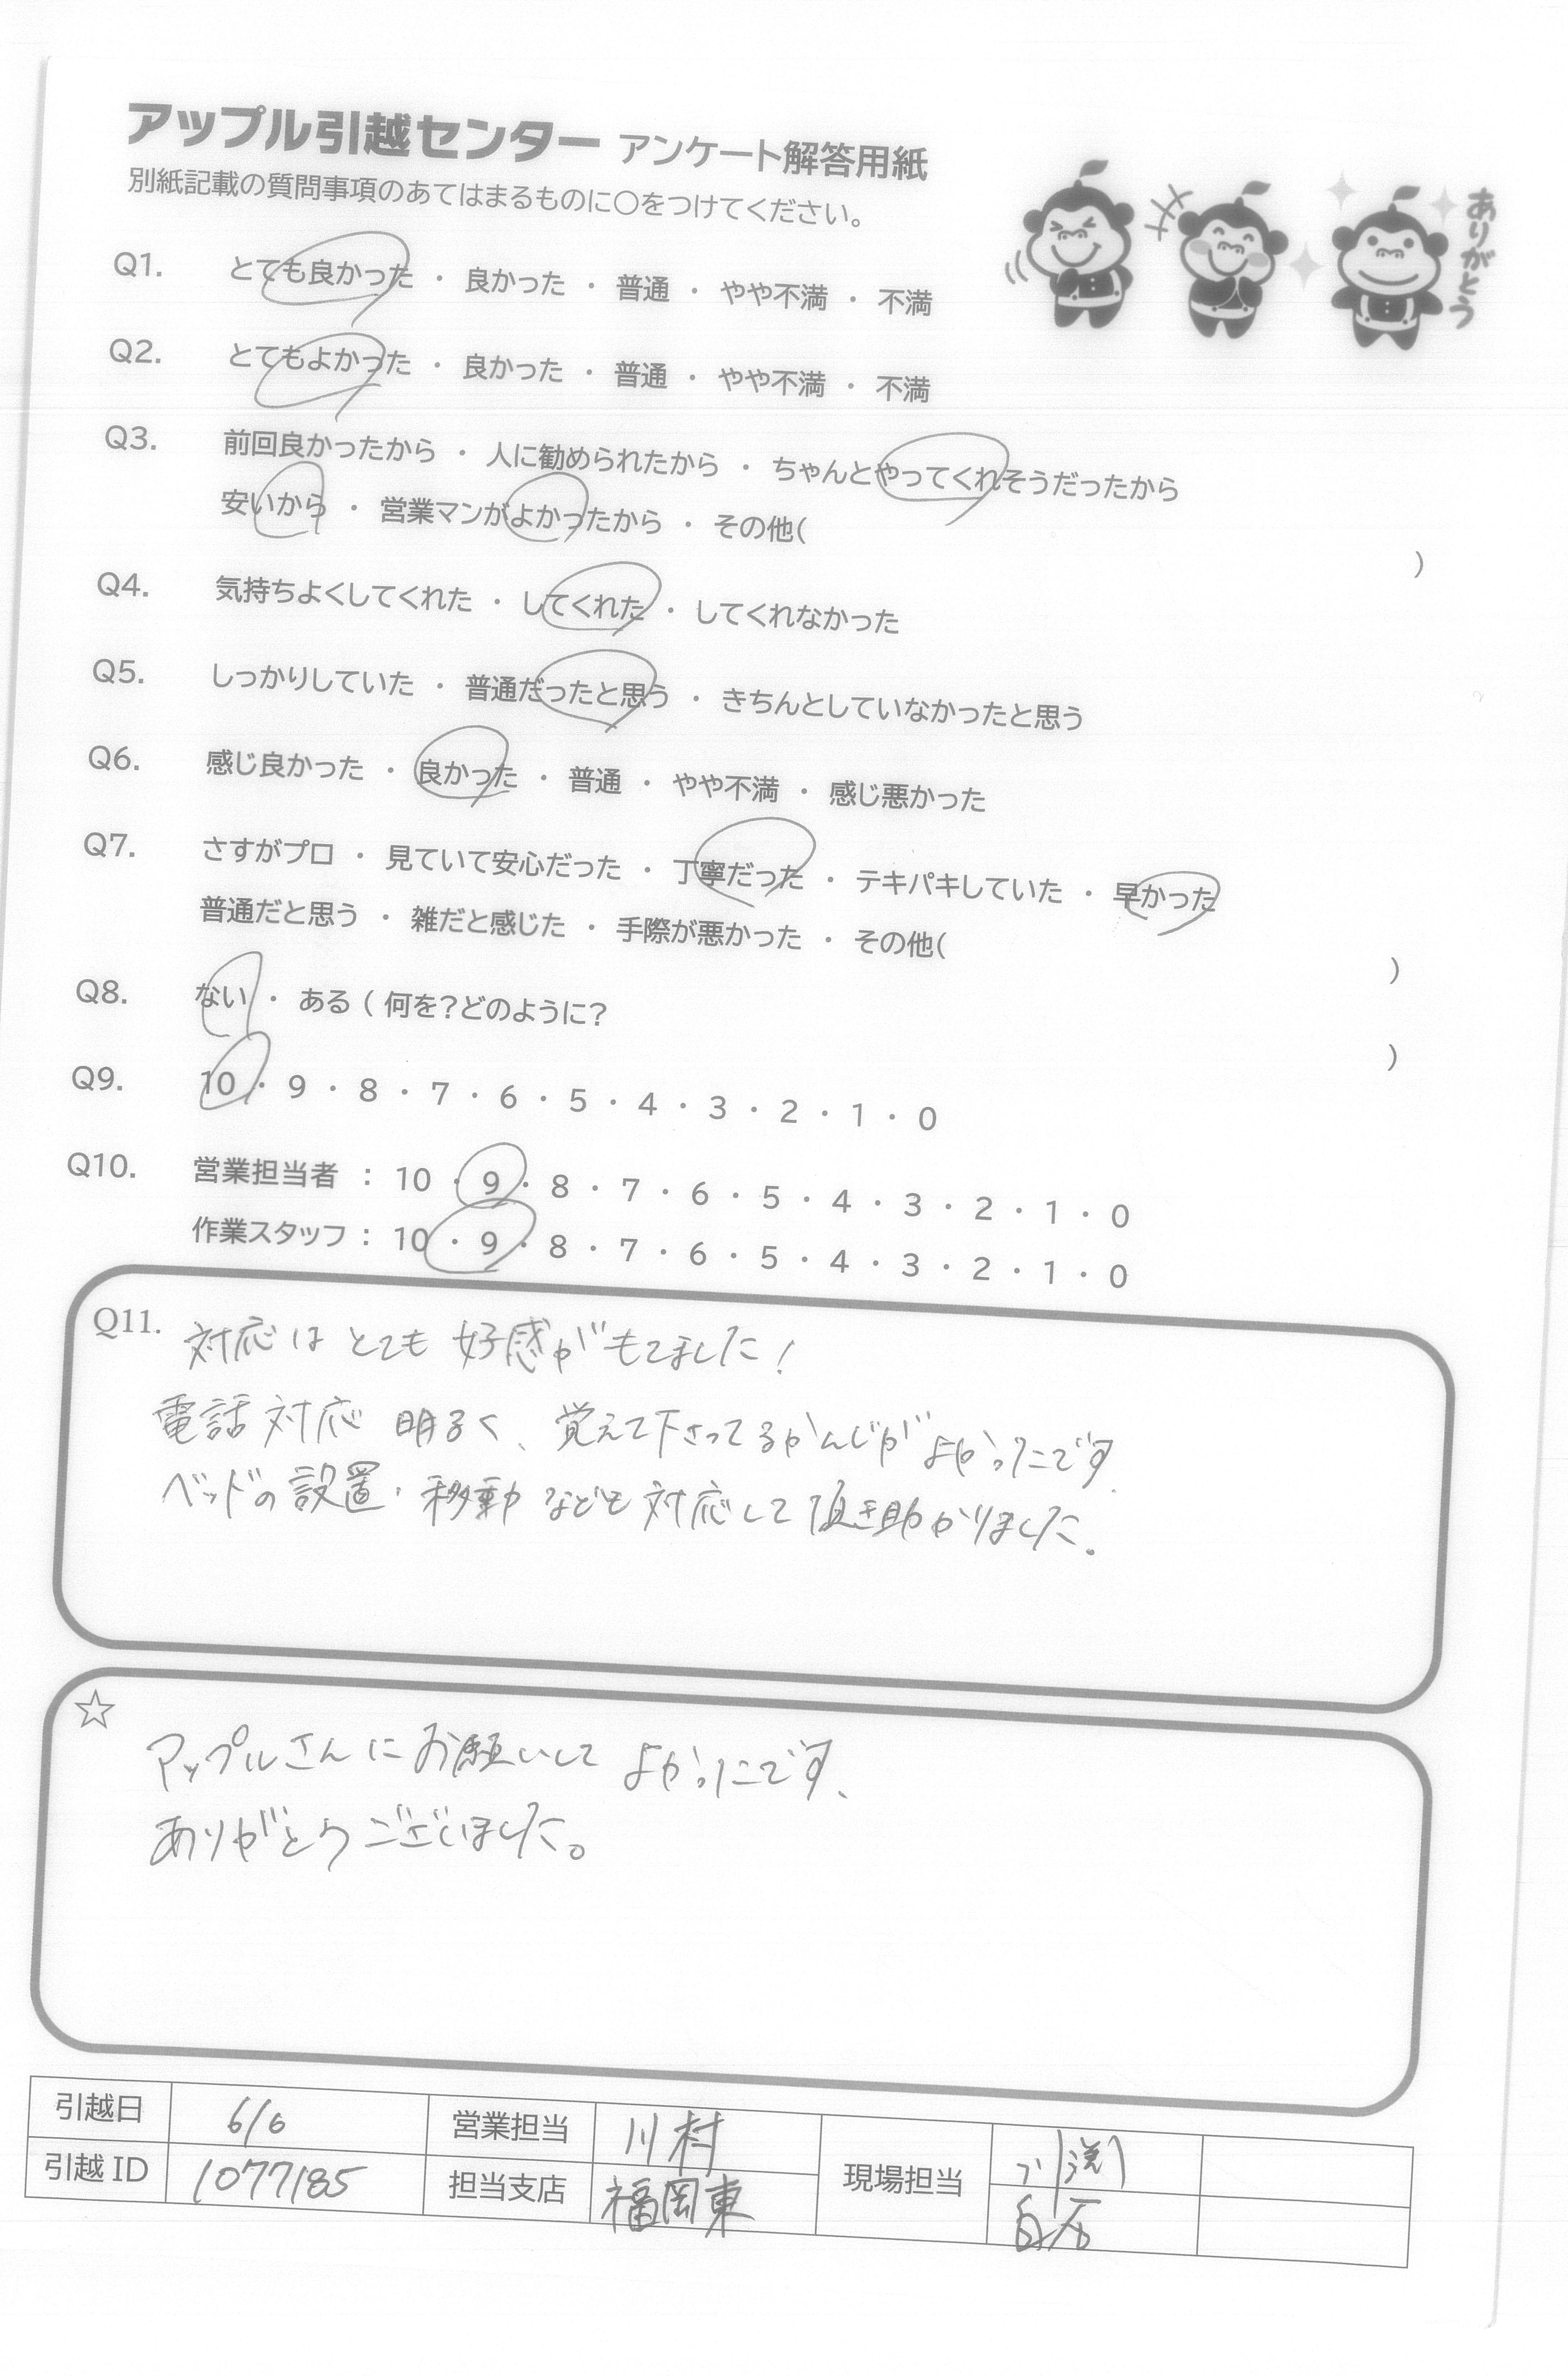 アップル引越センター アンケート解答用紙
別紙記載の質問事項のあてはまるものに○をつけてください。
ありがとう
Q1. とても良かった ・ 良かった ・ 普通 ・ やや不満 ・ 不満
Q2. とてもよかった ・ 良かった ・ 普通 ・ やや不満 ・ 不満
Q3. 前回良かったから ・ 人に勧められたから ・ ちゃんとやってくれそうだったから
安いから ・ 営業マンがよかったから ・ その他( )
Q4. 気持ちよくしてくれた ・ してくれた ・ してくれなかった
Q5. しっかりしていた ・ 普通だったと思う ・ きちんとしていなかったと思う
Q6. 感じ良かった ・ 良かった ・ 普通 ・ やや不満 ・ 感じ悪かった
Q7. さすがプロ ・ 見ていて安心だった ・ 丁寧だった ・ テキパキしていた ・ 早かった
普通だと思う ・ 雑だと感じた ・ 手際が悪かった ・ その他( )
Q8. ない ・ ある ( 何を?どのように? )
Q9. 10 ・ 9 ・ 8 ・ 7 ・ 6 ・ 5 ・ 4 ・ 3 ・ 2 ・ 1 ・ 0
Q10. 営業担当者 : 10 ・ 9 ・ 8 ・ 7 ・ 6 ・ 5 ・ 4 ・ 3 ・ 2 ・ 1 ・ 0
作業スタッフ : 10 ・ 9 ・ 8 ・ 7 ・ 6 ・ 5 ・ 4 ・ 3 ・ 2 ・ 1 ・ 0
Q11. 対応はとても好感がもてました!
電話対応 明るく、覚えて下さってるかんじがよかったです.
ベッドの設置・移動なども対応して頂き助かりました.
☆
アップルさんにお願いしてよかったです、
ありがとうございました。
引越日 6/6 営業担当 川村 現場担当
引越 ID 1077185 担当支店 福岡東 白石